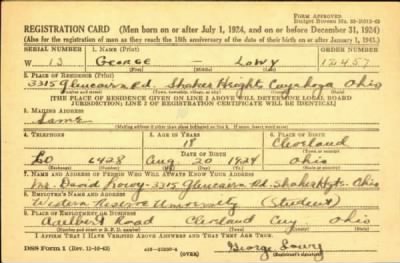 FORM APPROVED
Budget Bureau No. 33-R012-43
REGISTRATION CARD (Men born on or after July 1, 1924, and on or before December 31, 1924)
(Also for the registration of men as they reach the 18th anniversary of the date of their birth on or after January 1, 1943.)
SERIAL NUMBER 1. NAME (Print) ORDER NUMBER
W 13 GEORGE — LOWY 12457
(First) (Middle) (Last)
2. PLACE OF RESIDENCE (Print)
3315 Glencairn Rd. Shaker Heights Cuyahoga Ohio
(Number and street) (Town, township, village, or city) (County) (State)
[THE PLACE OF RESIDENCE GIVEN ON LINE 2 ABOVE WILL DETERMINE LOCAL BOARD
JURISDICTION; LINE 2 OF REGISTRATION CERTIFICATE WILL BE IDENTICAL]
3. MAILING ADDRESS
Same
[Mailing address if other than place indicated on line 2. If same, insert word same]
4. TELEPHONE 5. AGE IN YEARS 6. PLACE OF BIRTH
18 Cleveland
DATE OF BIRTH
6428 Aug. 20 1924 Ohio
(Exchange) (Number) (Mo.) (Day) (Yr.) (State or country)
7. NAME AND ADDRESS OF PERSON WHO WILL ALWAYS KNOW YOUR ADDRESS
David Lowy - 3315 Glencairn Rd. Shaker Hgts. Ohio
8. EMPLOYER'S NAME AND ADDRESS
Western Reserve University (Student)
9. PLACE OF EMPLOYMENT OR BUSINESS
Adelbert Road Cleveland Cuy. Ohio
(Number and street or R. F. D. number) (Town) (County) (State)
I AFFIRM THAT I HAVE VERIFIED ABOVE ANSWERS AND THAT THEY ARE TRUE.
DSS Form 1 (Rev. 11-16-42) (OVER) George Lowy